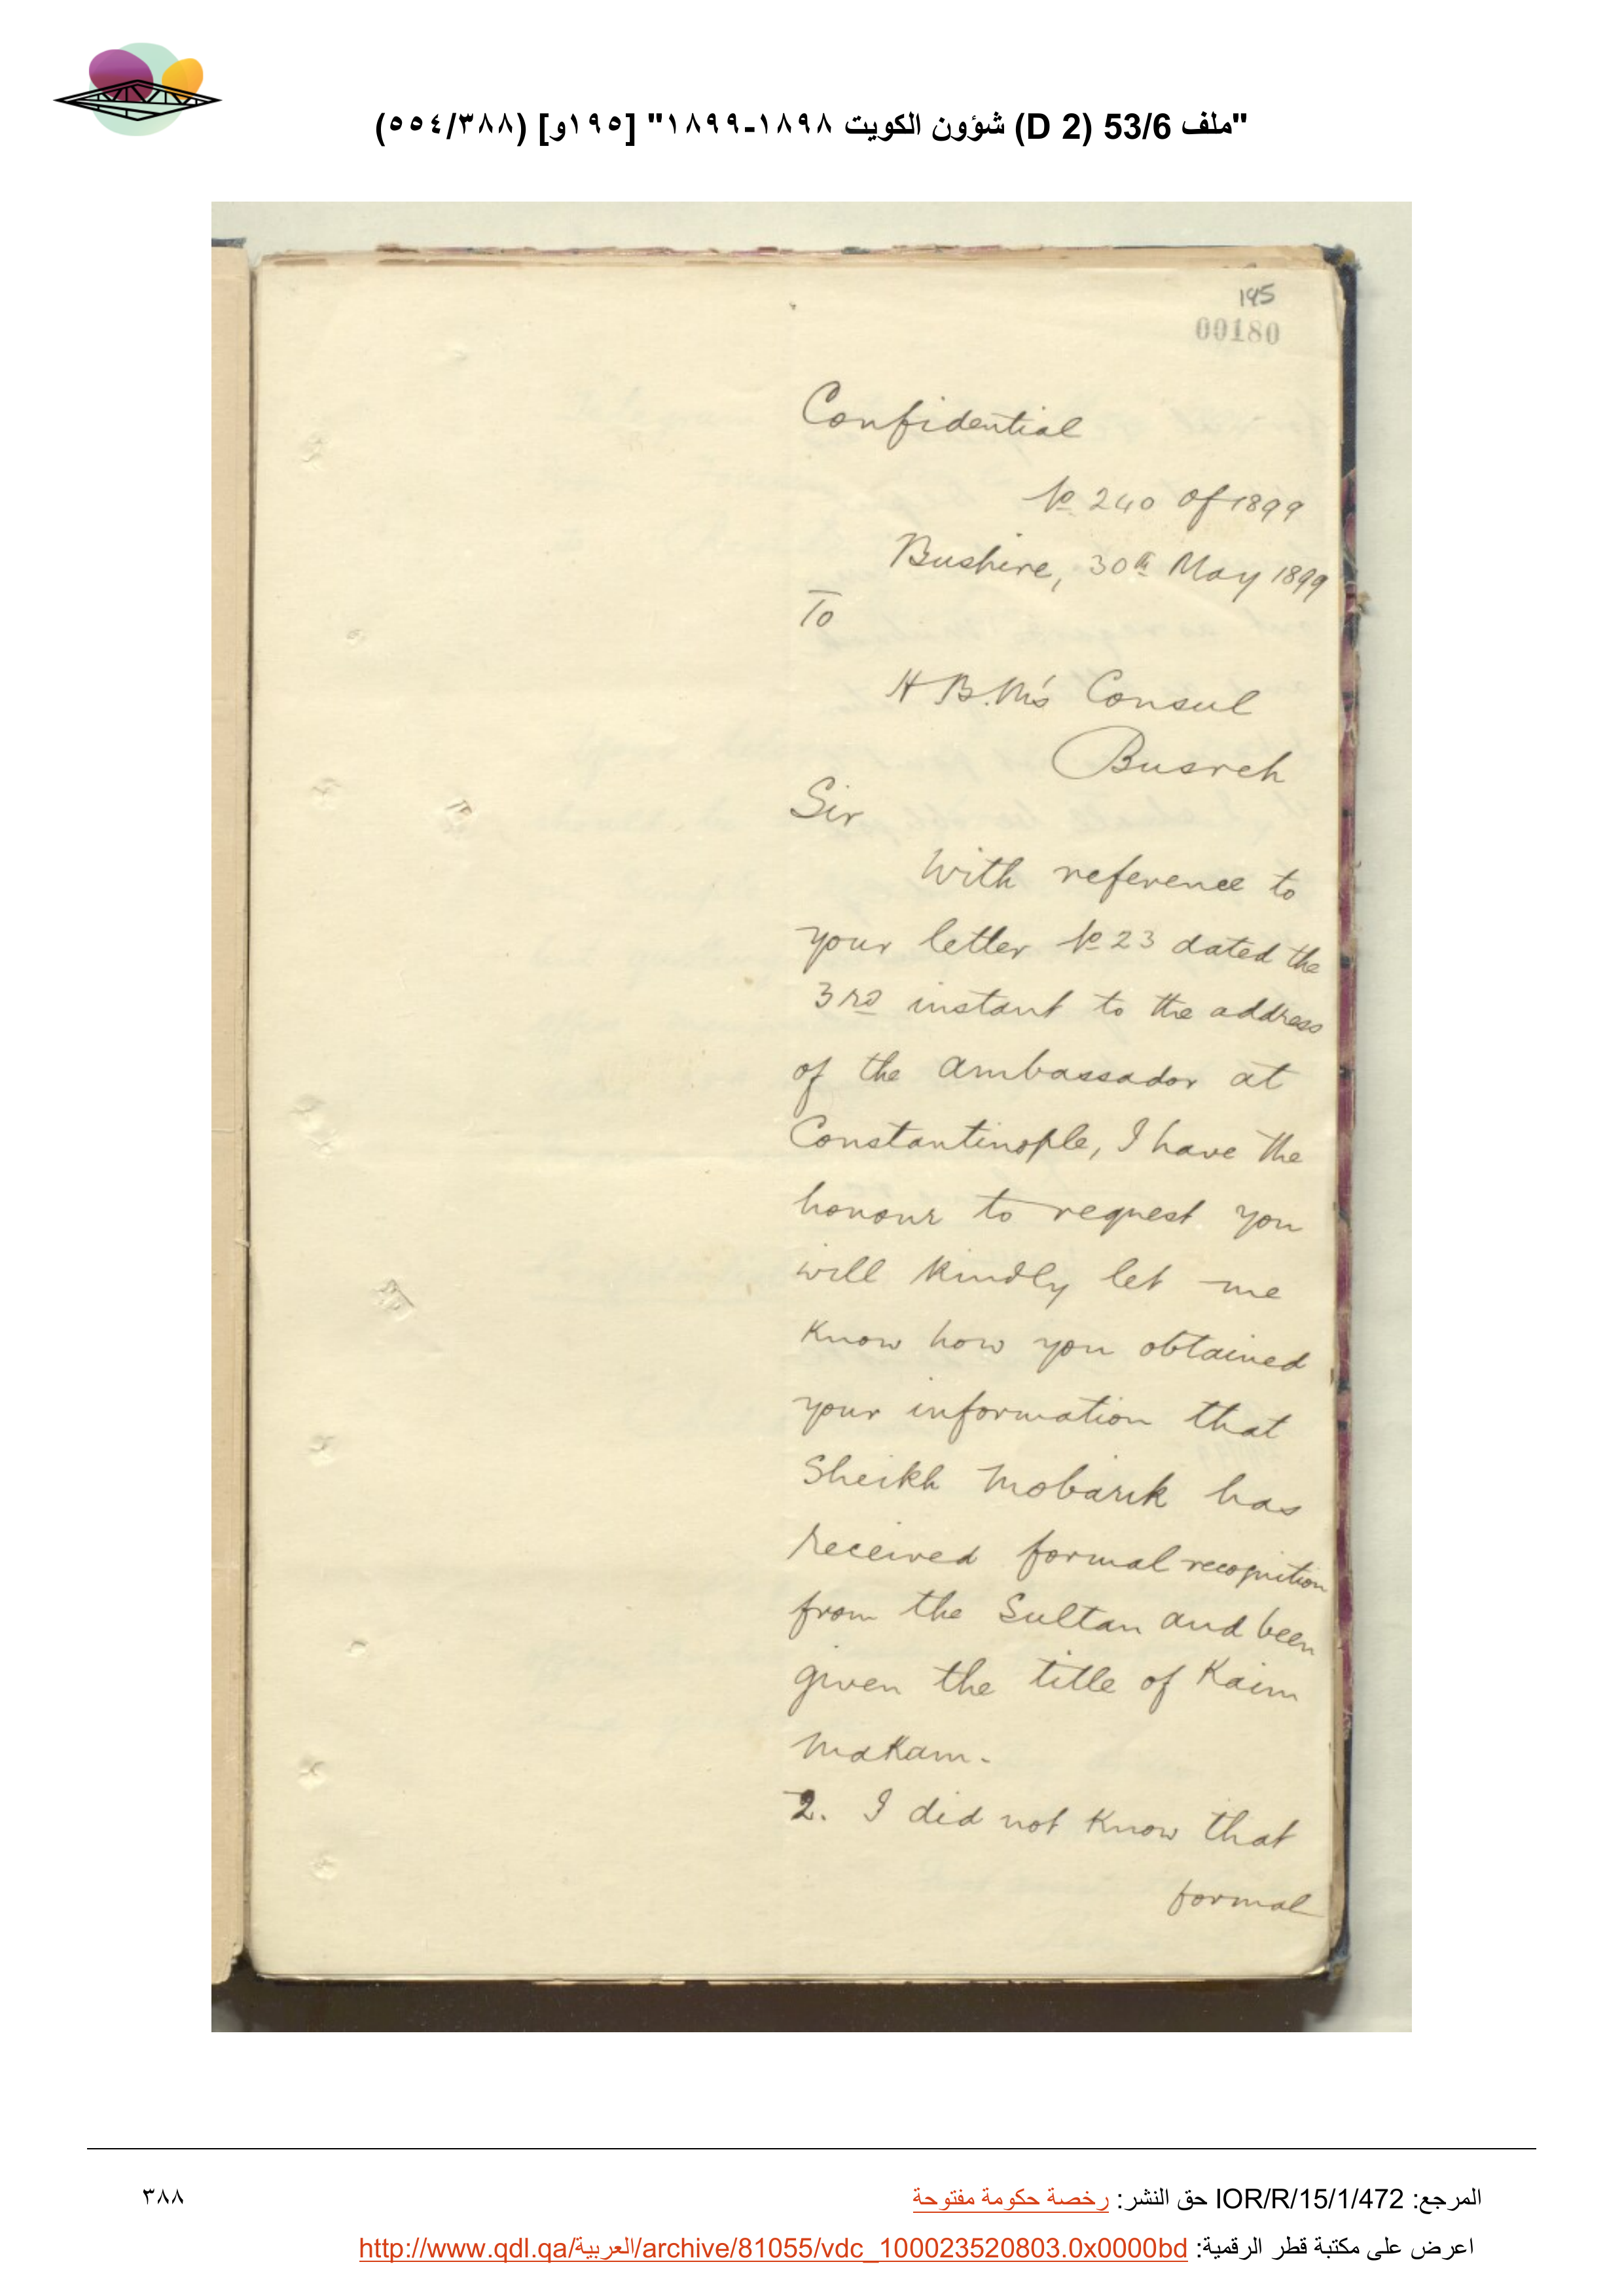 "ملف 53/6 (D 2) شؤون الكويت ١٨٩٨-١٨٩٩" [١٩٥و] (٣٨٨/٥٥٤)
195
00180
Confidential
No 240 of 1899
Bushire, 30th May 1899
To
H B.M's Consul
Busreh
Sir
With reference to
your letter No 23 dated the
3rd instant to the address
of the Ambassador at
Constantinople, I have the
honour to request you
will kindly let me
know how you obtained
your information that
Sheikh Mobarik has
received formal recognition
from the Sultan and been
given the title of Kaim
Makam.
2. I did not know that
formal
المرجع: IOR/R/15/1/472 حق النشر: رخصة حكومة مفتوحة
٣٨٨
اعرض على مكتبة قطر الرقمية: http://www.qdl.qa/العربية/archive/81055/vdc_100023520803.0x0000bd